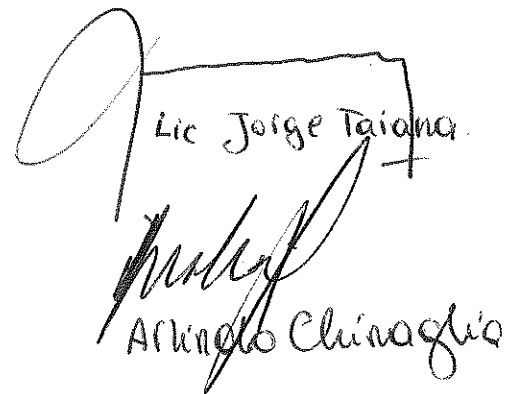 Lic Jorge Taiana.
Arlindo Chinaglia